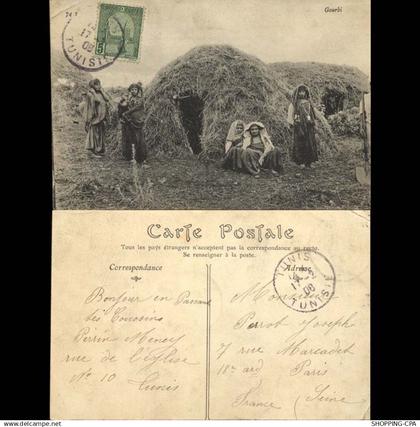 Gourbi
5
17
08
TUNIS
Carte Postale
Tous les pays étrangers n'acceptent pas la correspondance au recto.
Se renseigner à la poste.
Correspondance
Adresse
TUNIS
17
08
TUNISIE
Bonjour en Passant
tes Cousins
Perrin Mency
rue de l'Eglise
No 10 Tunis
Monsieur
Perrot Joseph
7 rue Marcadet
18e ard Paris
France (Seine)
WWW.SHOPPING-CPA.COM